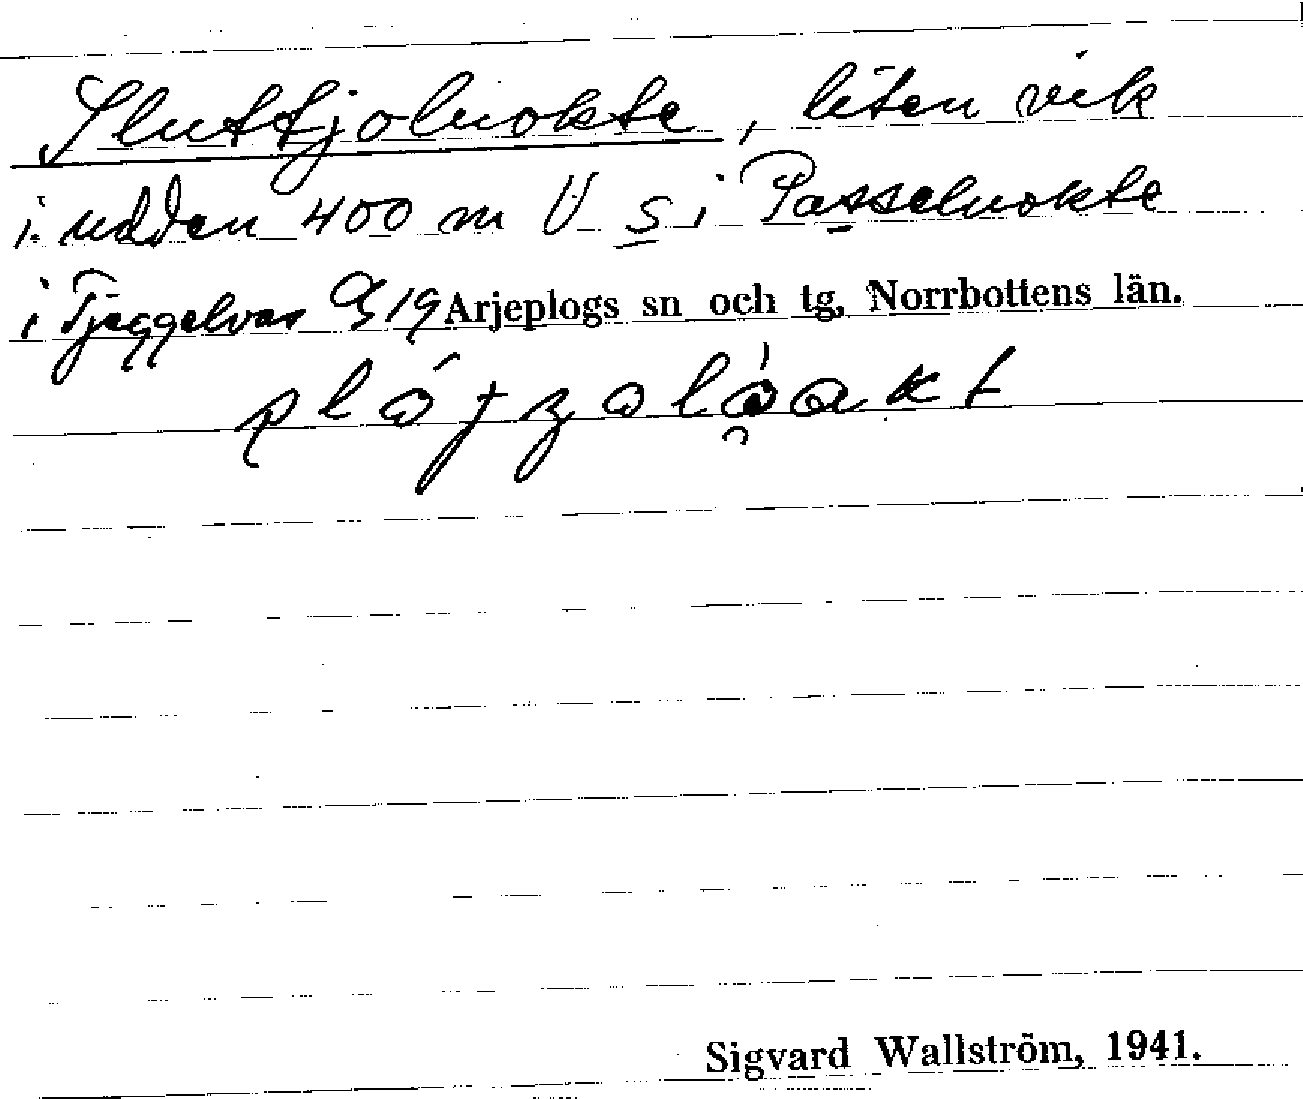 Sluttjoluokte, liten vik
i udden 400 m V s i Passeluokte
i Tjeggelvas 19 Arjeplogs sn och tg, Norrbottens län.
Sigvard Wallström, 1941.